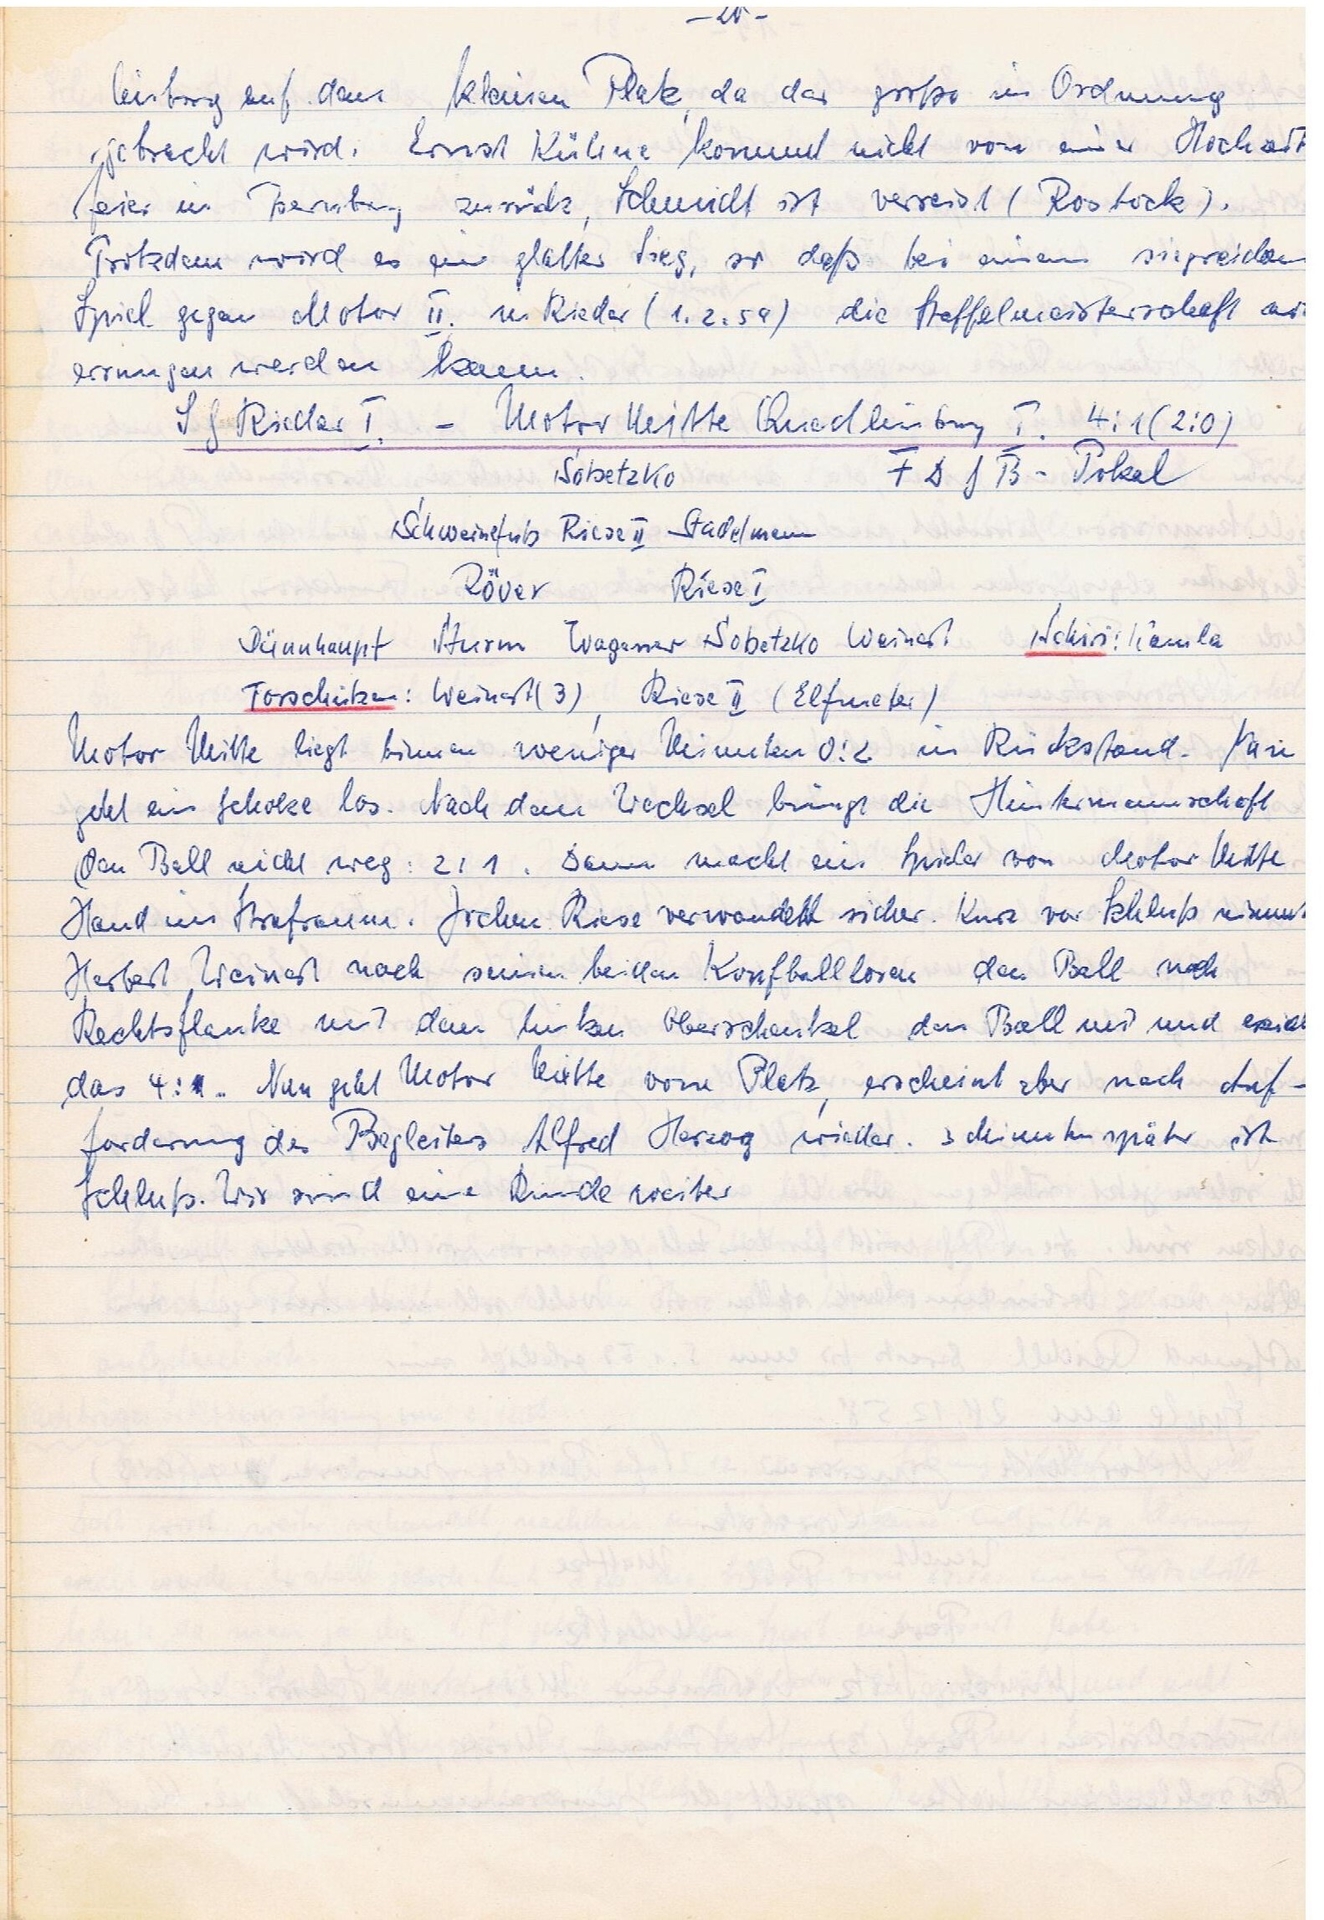 linburg auf dem kleinen Platz, da der große in Ordnung
gebracht wird. Ernst Kühne kommt nicht von einer Hochzeit
feier in Bernburg zurück, Schmidt ist verreist (Rostock).
Trotzdem wird es ein glatter Sieg, so daß bei einem siegreichen
Spiel gegen Motor II. in Rieder (1.2.59) die Staffelmeisterschaft
errungen werden kann.
SG Rieder I. - Motor Mitte Quedlinburg I. 4:1 (2:0)
Sobetzko FDGB-Pokal
Schweinefuß Riese II Stadelmann
Röver Riese I
Dünnhaupt Sturm Wagener Sobetzko Weinert Schiri: Kamla
Torschützen: Weinert (3), Riese II (Elfmeter)
Motor Mitte liegt binnen weniger Minuten 0:2 in Rückstand.
geht ein los. Nach dem Wechsel bringt die Hintermannschaft
den Ball nicht weg: 2:1. Dann macht ein Spieler von Motor Mitte
Hand im Strafraum. Jochen Riese verwandelt sicher. Kurz vor Schluß nimmt
Herbert Weinert nach seinen beiden Kopfballtoren den Ball nach
Rechtsflanke mit dem linken Oberschenkel den Ball mit und erziel
das 4:1. Nun geht Motor Mitte vom Platz, erscheint aber nach Auf-
forderung des Begleiters Alfred Herzog wieder. 3 Minuten später ist
Schluß. Wir sind eine Runde weiter